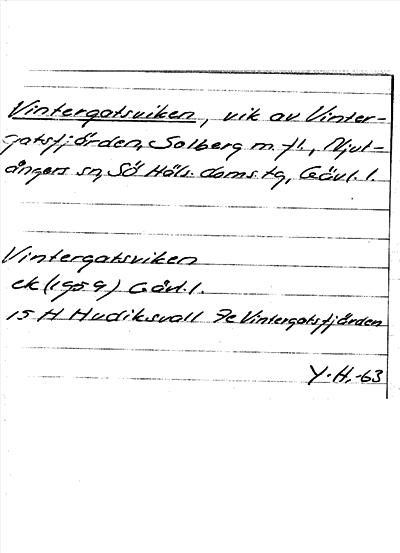 Vintergatsviken, vik av Vinter-
gatsfjärden, Solberg m.fl., Njut-
ångers sn, Sö Häls. doms.tg, Gävl.l.
Vintergatsviken
ek (1959) Gävl.l.
15 H Hudiksvall 7e Vintergatsfjärden
Y.H.-63